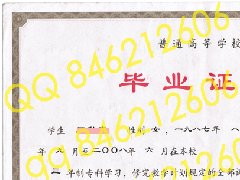 普通高等学校
毕业证
学生 性别 女, 一九八七年 八
年 九 月至二〇〇八年 六 月在本校
半制专科学习, 修完教学计划规定的全部
QQ 846212606
QQ 846212606